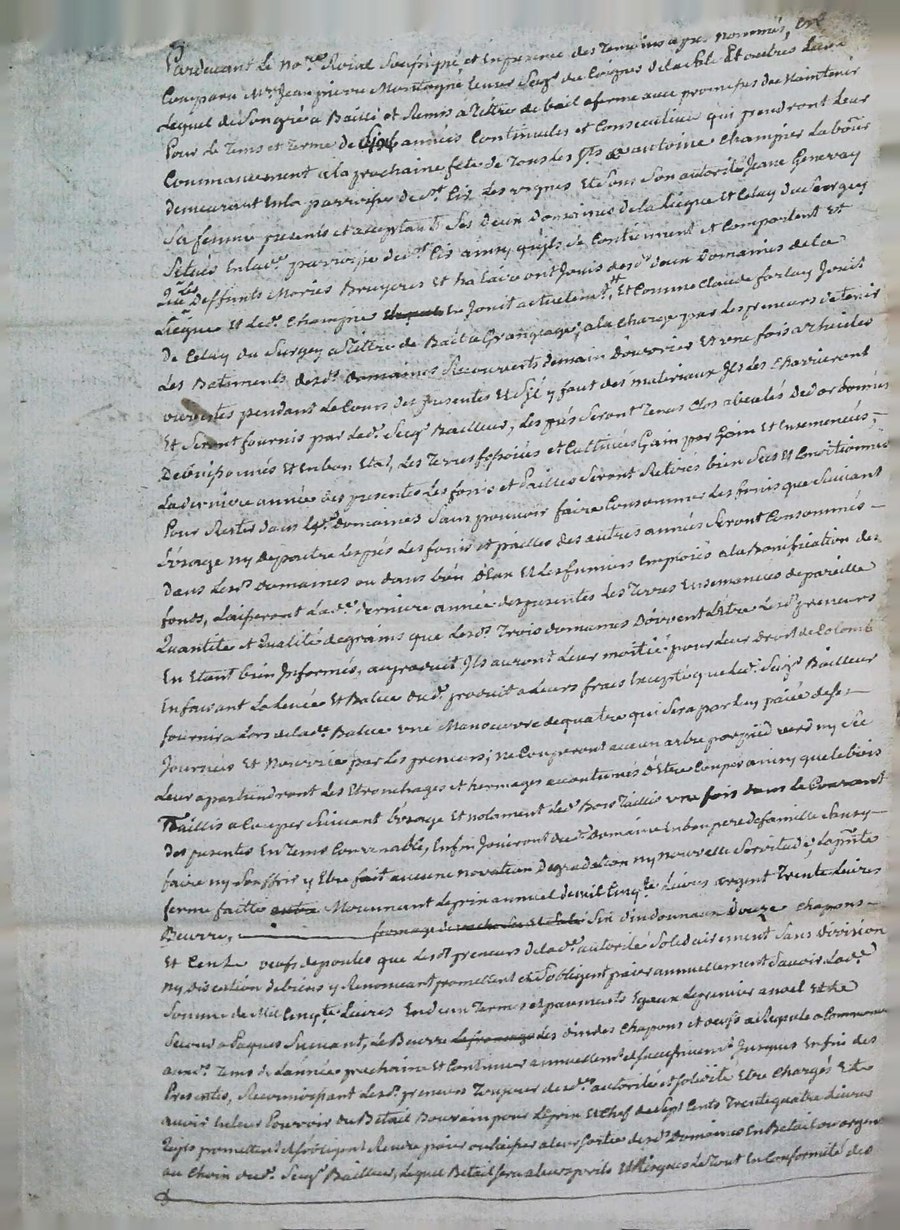 Pardevant le no.re Roial Soussigné, et en presence des temoins apres nommés, est
Comparu M.re Jean pierre Montagne Ecuyer Seig.r de Poignes de la Sale Et autres Lieux
Lequel de Son gré a Baillé et Remis a Tittre de bail a ferme avec promesses de Maintenir
Pour le Tems et terme de Six années Continuelles et Consecutives qui prendront leur
Commancement a la prochaine fete de Tous les S.ts a antoine Champier Labour
demeurant En la parroisse de S.t Cir les vignes Et Sous Son autorité Jeane Genevay
Sa femme presents et acceptants Ses deux Domaines de la Liegue Et Celuy du Sorgey
Situés En lad.e parroisse de S.t Cir ainsy qu'ils Se Contiennent et Comportent Et
Que les Deffunts Mories Bruyeres Et Palais ont Jouis desd. deux Domaines de la
Liegue Et led. Champier en Jouit actuelem.t, Et Comme Claude forlay Jouit
De Celuy du Surgey a Tittre de Bail a Grangeage, a la Charge par les preneurs de tenir
Les Batiments desd. domaines Recouverts de main d'ouvrier Et une fois a thuiles
ouvertes pendant le Cours des presentes Et S'il y faut des materiaux Ils les Charrieront
Et Seront fournis par led. Seig.r Bailleur, les prés Seront Tenus Clos abealés
Et en bon Etat, les Terres fossoiées et Cultivées Gain par Gain Et Ensemencées,
La derniere année des presentes Les foins et pailles Seront Retirés bien Secs Et Conditionnés
Pour Rester dans les d. domaines Sans pouvoir faire Consommer Les foins que Suivant
L'Usage ny depaitre les prés Les foins et pailles des autres années Seront Consommés
Dans lesd. domaines ou dans bien d'Eux Et les fumiers Emploiés a la Bonification des
fonds, Laisseront La d.e derniere année des presentes les Terres Ensemencées de pareille
Quantité et Qualité de grains que lesd. Trois domaines doivent L'Etre Lesd. preneurs
En Etant bien Informés, au produit Ils auront leur moitié pour Leur Droit de Colombé
En faisant La Levée Et Batue dud. produit a Leurs frais Excepté que led. Seig.r Bailleur
fournira Lors de lad.e Batue une Manoeuvre de quatre qui Sera par Luy païée de Ses
Journées Et Nourrie par les preneurs, ne Couperont aucun arbre par pied verd ny Sec
Leur apartiendront Les Etronchages et hermages acoutumés d'Etre Coupés ainsy que le bois
Taillis a Couper Suivant L'Usage Et notament Led. Bois Taillis une fois dans le Courant
Des presentes En Tems Convenable, Enfin Jouiront dud. domaine En bon pere de famille Sans y
faire ny Souffrir y Etre fait aucune novation Degradation ny nouvelle Servitude, la p.nte
ferme faitte outre Moiennant Le prix annuel de mil Cinq.te Livres argent Trente Livres
Beurre, fromage de vache Six dindonnaux Douze Chapons
Et Cent oeufs de poules que les d. preneurs de lad.e autorité Solidairement Sans Division
Ny Discution de biens y Renoncant promettent et S'obligent païer annuellement Savoir Lad.e
Somme de Mil Cinq.te Livres En deux Termes et païements Egaux Le premier a noel Et le
Second a Paques Suivant, Le Beurre Le fromage Les dindes Chapons et oeufs a Requete a Commencer
aux d. Tems de L'année prochaine et Continuer annuellem.t et Successivem.t Jusques En fin des
Presentes, Reconnoissant Les d. preneurs Toujours de la d.e autorité et Solidité Etre Chargés Et
avoir En leur Pouvoir du Betail Bouvain pour Le prix Et Chef de Sept Cents Trente quatre Livres
promettent et S'obligent Rendre païer ou laisser a leur Sortie desd. domaines En Betail ou argent
au Choix dud. Seig.r Bailleur, Lequel Betail Sera a leurs perils Et Risques Le Tout En Conformité des